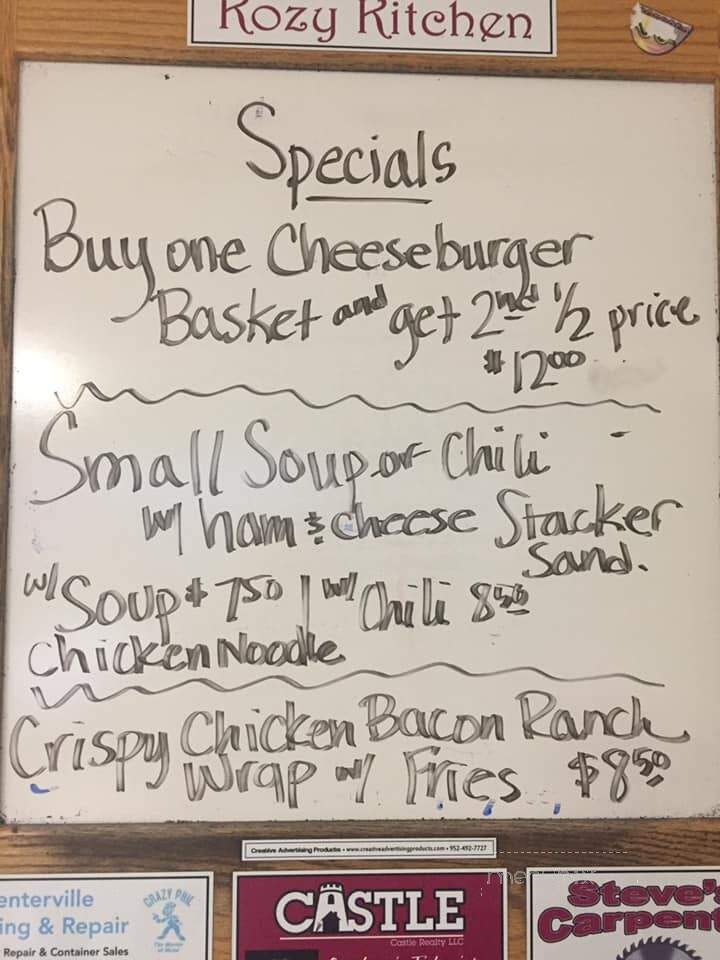 Kozy Kitchen
Specials
Buy one Cheeseburger
Basket and get 2nd 1/2 price
$1200
Small Soup or Chili
w/ ham & cheese Stacker
Sand.
w/ Soup $750 | w/ Chili 850
Chicken Noodle
Crispy Chicken Bacon Ranch
Wrap w/ Fries $850
Creative Advertising Products • www.creativeadvertisingproducts.com • 952-492-7727
enterville
ing & Repair
Repair & Container Sales
CRAZY PHIL
CASTLE
Castle Realty LLC
Steve's
Carpent